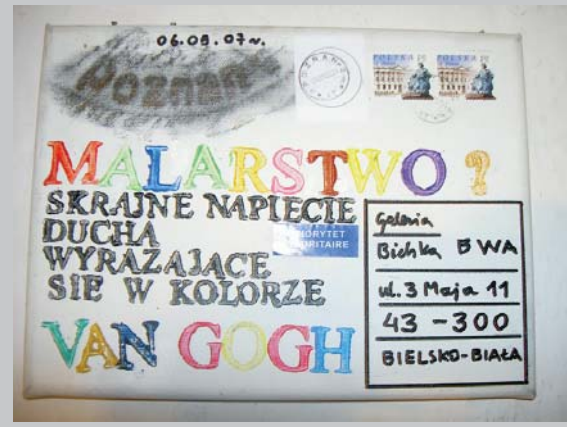 06.09.07r.
POZNAŃ
POZNAŃ
POLSKA
POLSKA
MALARSTWO?
SKRAJNE NAPIĘCIE
DUCHA
WYRAZAJĄCE
SIE W KOLORZE
VAN GOGH
PRIORYTET
PRIORITAIRE
Galeria
Bielska BWA
ul. 3 Maja 11
43-300
BIELSKO-BIAŁA